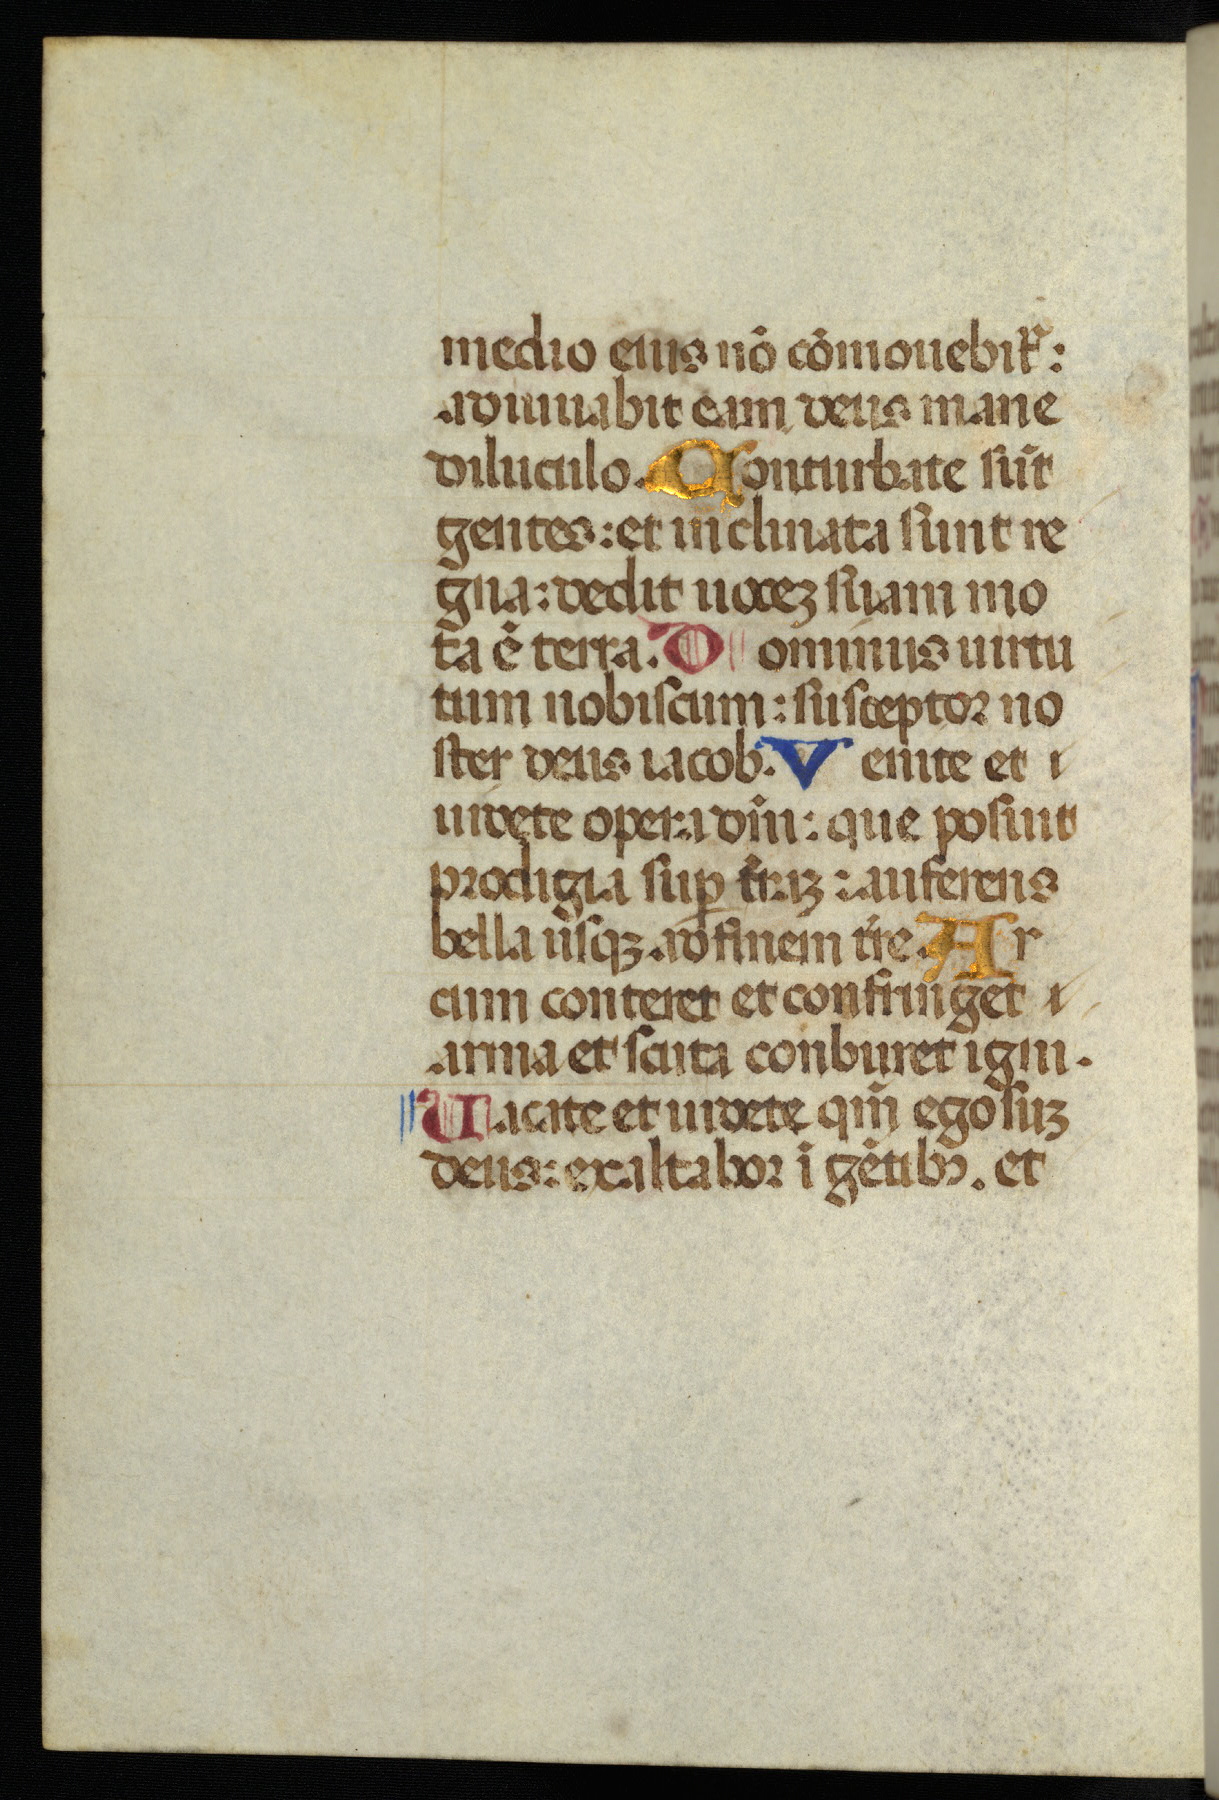 medio eius nō cōmouebit᷑:
adiuuabit eam deus mane
diluculo. Conturbate sūt
gentes: et inclinata sunt re
gna: dedit uocez suam mo
ta ē terra. Dominus uirtu
tum nobiscum: susceptor no
ster deus iacob. Venite et i
uidete opera dn̄i: que posuit
prodigia suꝑ tr̄aꝫ: auferens
bella usqꝫ ad finem tr̄e. Ar
cum conteret et confringet i
arma et scuta conburet igni.
Uacate et uidete qm̄ ego suꝫ
deus: exaltabor ī gētibꝰ. et